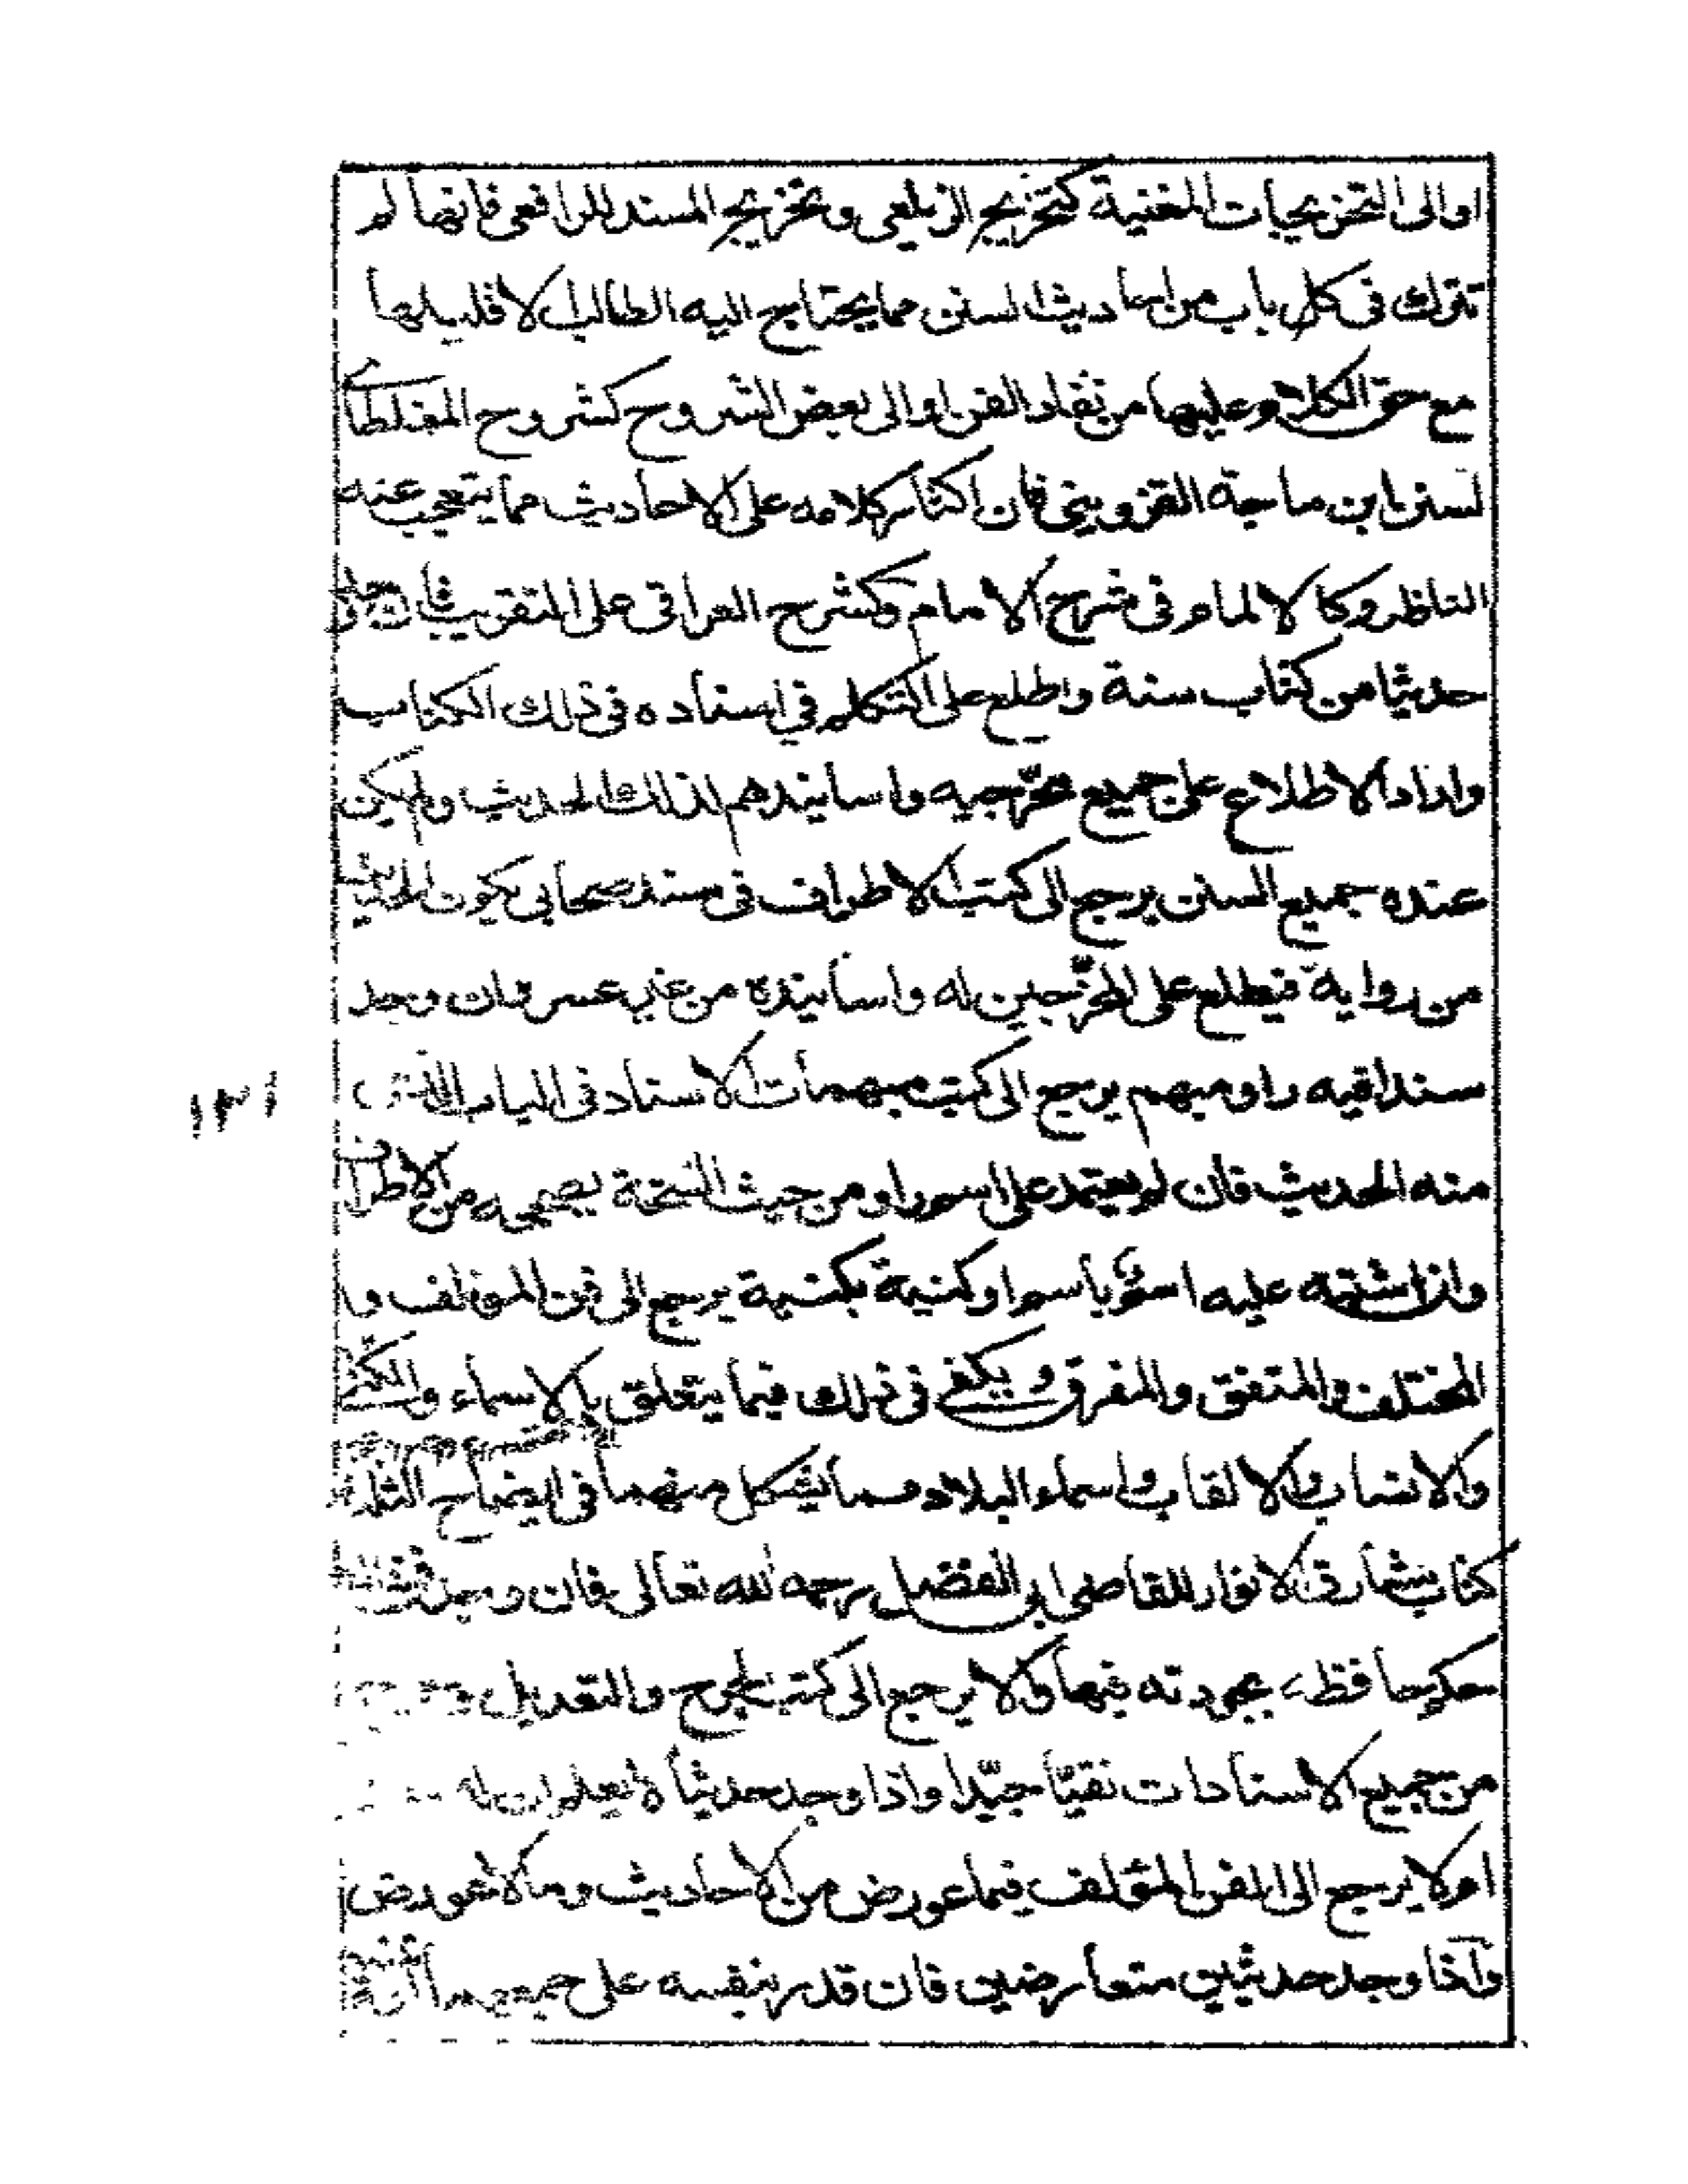 او الى التخريجيات المغنية كتخريج الزيلعى وتخريج المسند للرافعى فانها لم
تترك فى كل باب من احاديث السنن مما يحتاج اليه الطالب الا قليلها
مع حق الكلام عليها من نقاد الفن او الى بعض الشروح كشروح المغلطاى
لسنن ابن ماجة القزوينى فان اكثار كلامه على الاحاديث مما يتعجب عنه
الناظر وكالالمام فى شرح الامام وكشرح العراقى على التقريب فان
حديثا من كتاب سنة واطلع على التكلم فى اسناده فى ذلك الكتاب
واراد الاطلاع على جميع مخرّجيه واسانيدهم لذلك الحديث ولم يكن
عنده جميع السنن يرجع الى كتب الاطراف فى سند صحابى يكون الحديث
من رواية فيطلع على المخرّجين له واسانيده من غير عسر فان وجد
سندا فيه راو مبهم يرجع الى كتب مبهمات الاسناد فى الباب الذى
منه الحديث فان لم يعتمد على اسم راو من حيث النسخة يصححه من الاطراف
واذا اشتبه عليه اسم باسم او كنية بكنية يرجع الى فن المؤتلف و
المختلف والمتفق والمفرق ويكفى فى ذلك فيما يتعلق بالاسماء والكنى
والانساب والالقاب واسماء البلاد وما يشكل منهما فى ايضاح
كتاب مشارق الانوار للقاضى ابى الفضل رحمه الله تعالى فان وجد
حكم حافظ بجودته فبها والا يرجع الى كتب الجرح والتعديل
من جميع الاسنادات نقيّا جيّدا واذا وجد حديثا لا يعلم ان له
ام لا يرجع الى الفن المؤلف فيما عورض من الاحاديث وما لا عورض
واذا وجد حديثين متعارضين فان قدر بنفسه على جمعهما
١٣١